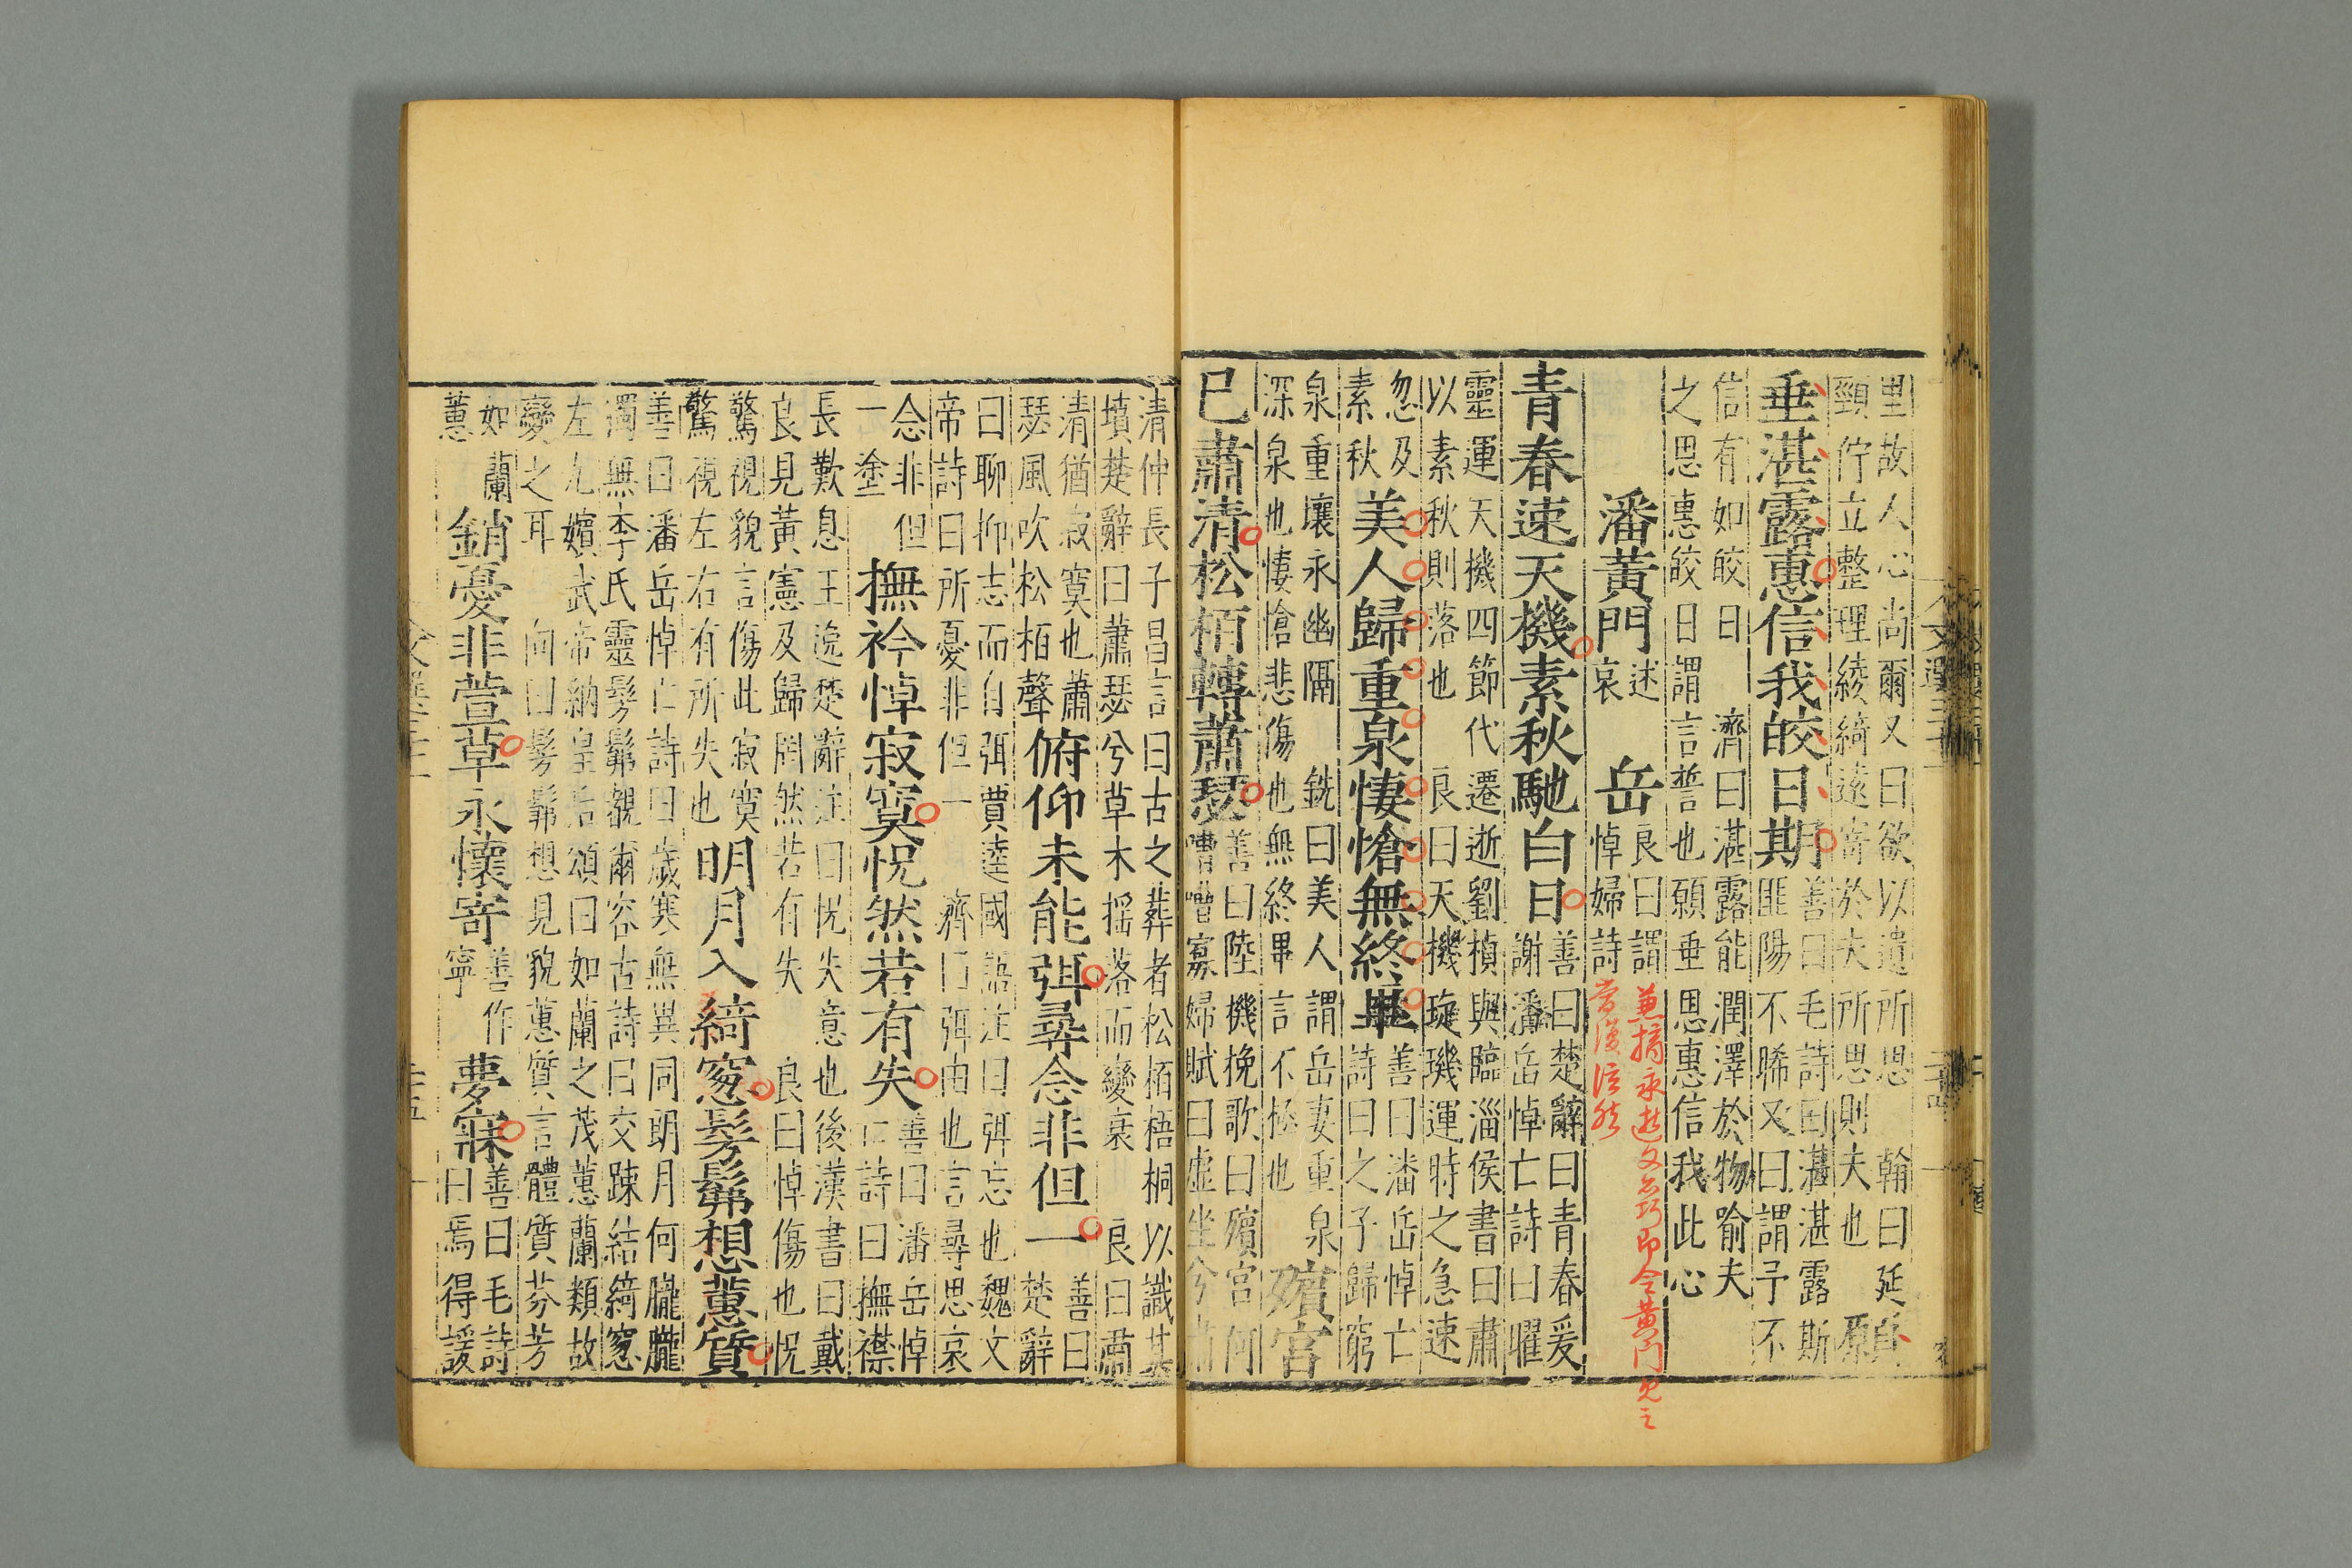 里故人心尚爾又曰欲以遺所思　翰曰延
頸佇立整理綾綺遠寄於夫所思則夫也　願
垂湛露惠信我皎日期
善曰毛詩曰湛湛露斯
匪陽不晞又曰謂予不
信有如皎日　濟曰湛露能潤澤於物喻夫
之恩惠皎日謂言誓也願垂恩惠信我此心
潘黃門
述
哀
岳
良曰謂
悼婦詩
青春速天機素秋馳白日
善曰楚辭曰青春爰
謝潘岳悼亡詩曰曜
靈運天機四節代遷逝劉楨與臨淄侯書曰肅
以素秋則落也　良曰天機璇璣運時之急速
忽及
素秋
美人歸重泉悽愴無終畢
善曰潘岳悼亡
詩曰之子歸窮
泉重壤永幽隔　銑曰美人謂岳妻重泉
深泉也悽愴悲傷也無終畢言不極也
殯宮
已肅清松栢轉蕭瑟
善曰陸機挽歌曰殯宮何
嘈嘈寡婦賦曰虛坐兮肅
清仲長子昌言曰古之葬者松栢梧桐以識其
墳楚辭曰蕭瑟兮草木揺落而變衰　良曰肅
清猶寂寞也蕭
瑟風吹松栢聲
俯仰未能弭尋念非但一
善曰
楚辭
曰聊抑志而自弭賈逵國語注曰弭忘也魏文
帝詩曰所憂非但一　濟曰弭由也言尋思哀
念非但
一塗
撫衿悼寂寞怳然若有失
善曰潘岳悼
亡詩曰撫襟
長歎息王逸楚辭注曰怳失意也後漢書曰戴
良見黃憲及歸罔然若有失　良曰悼傷也怳
驚視貌言傷此寂寞
驚視左右有所失也
明月入綺窓髣髴想蕙質
善曰潘岳悼亡詩曰歲寒無與同朗月何朧朧
獨無李氏靈髣髴覩爾容古詩曰交踈結綺窓
左九嬪武帝納皇后頌曰如蘭之茂蕙蘭類故
變之耳　向曰髣髴想見貌蕙質言體質芬芳
如蘭
蕙
銷憂非萱草永懷寄
善作
寧
夢寐
善曰毛詩
曰焉得諼